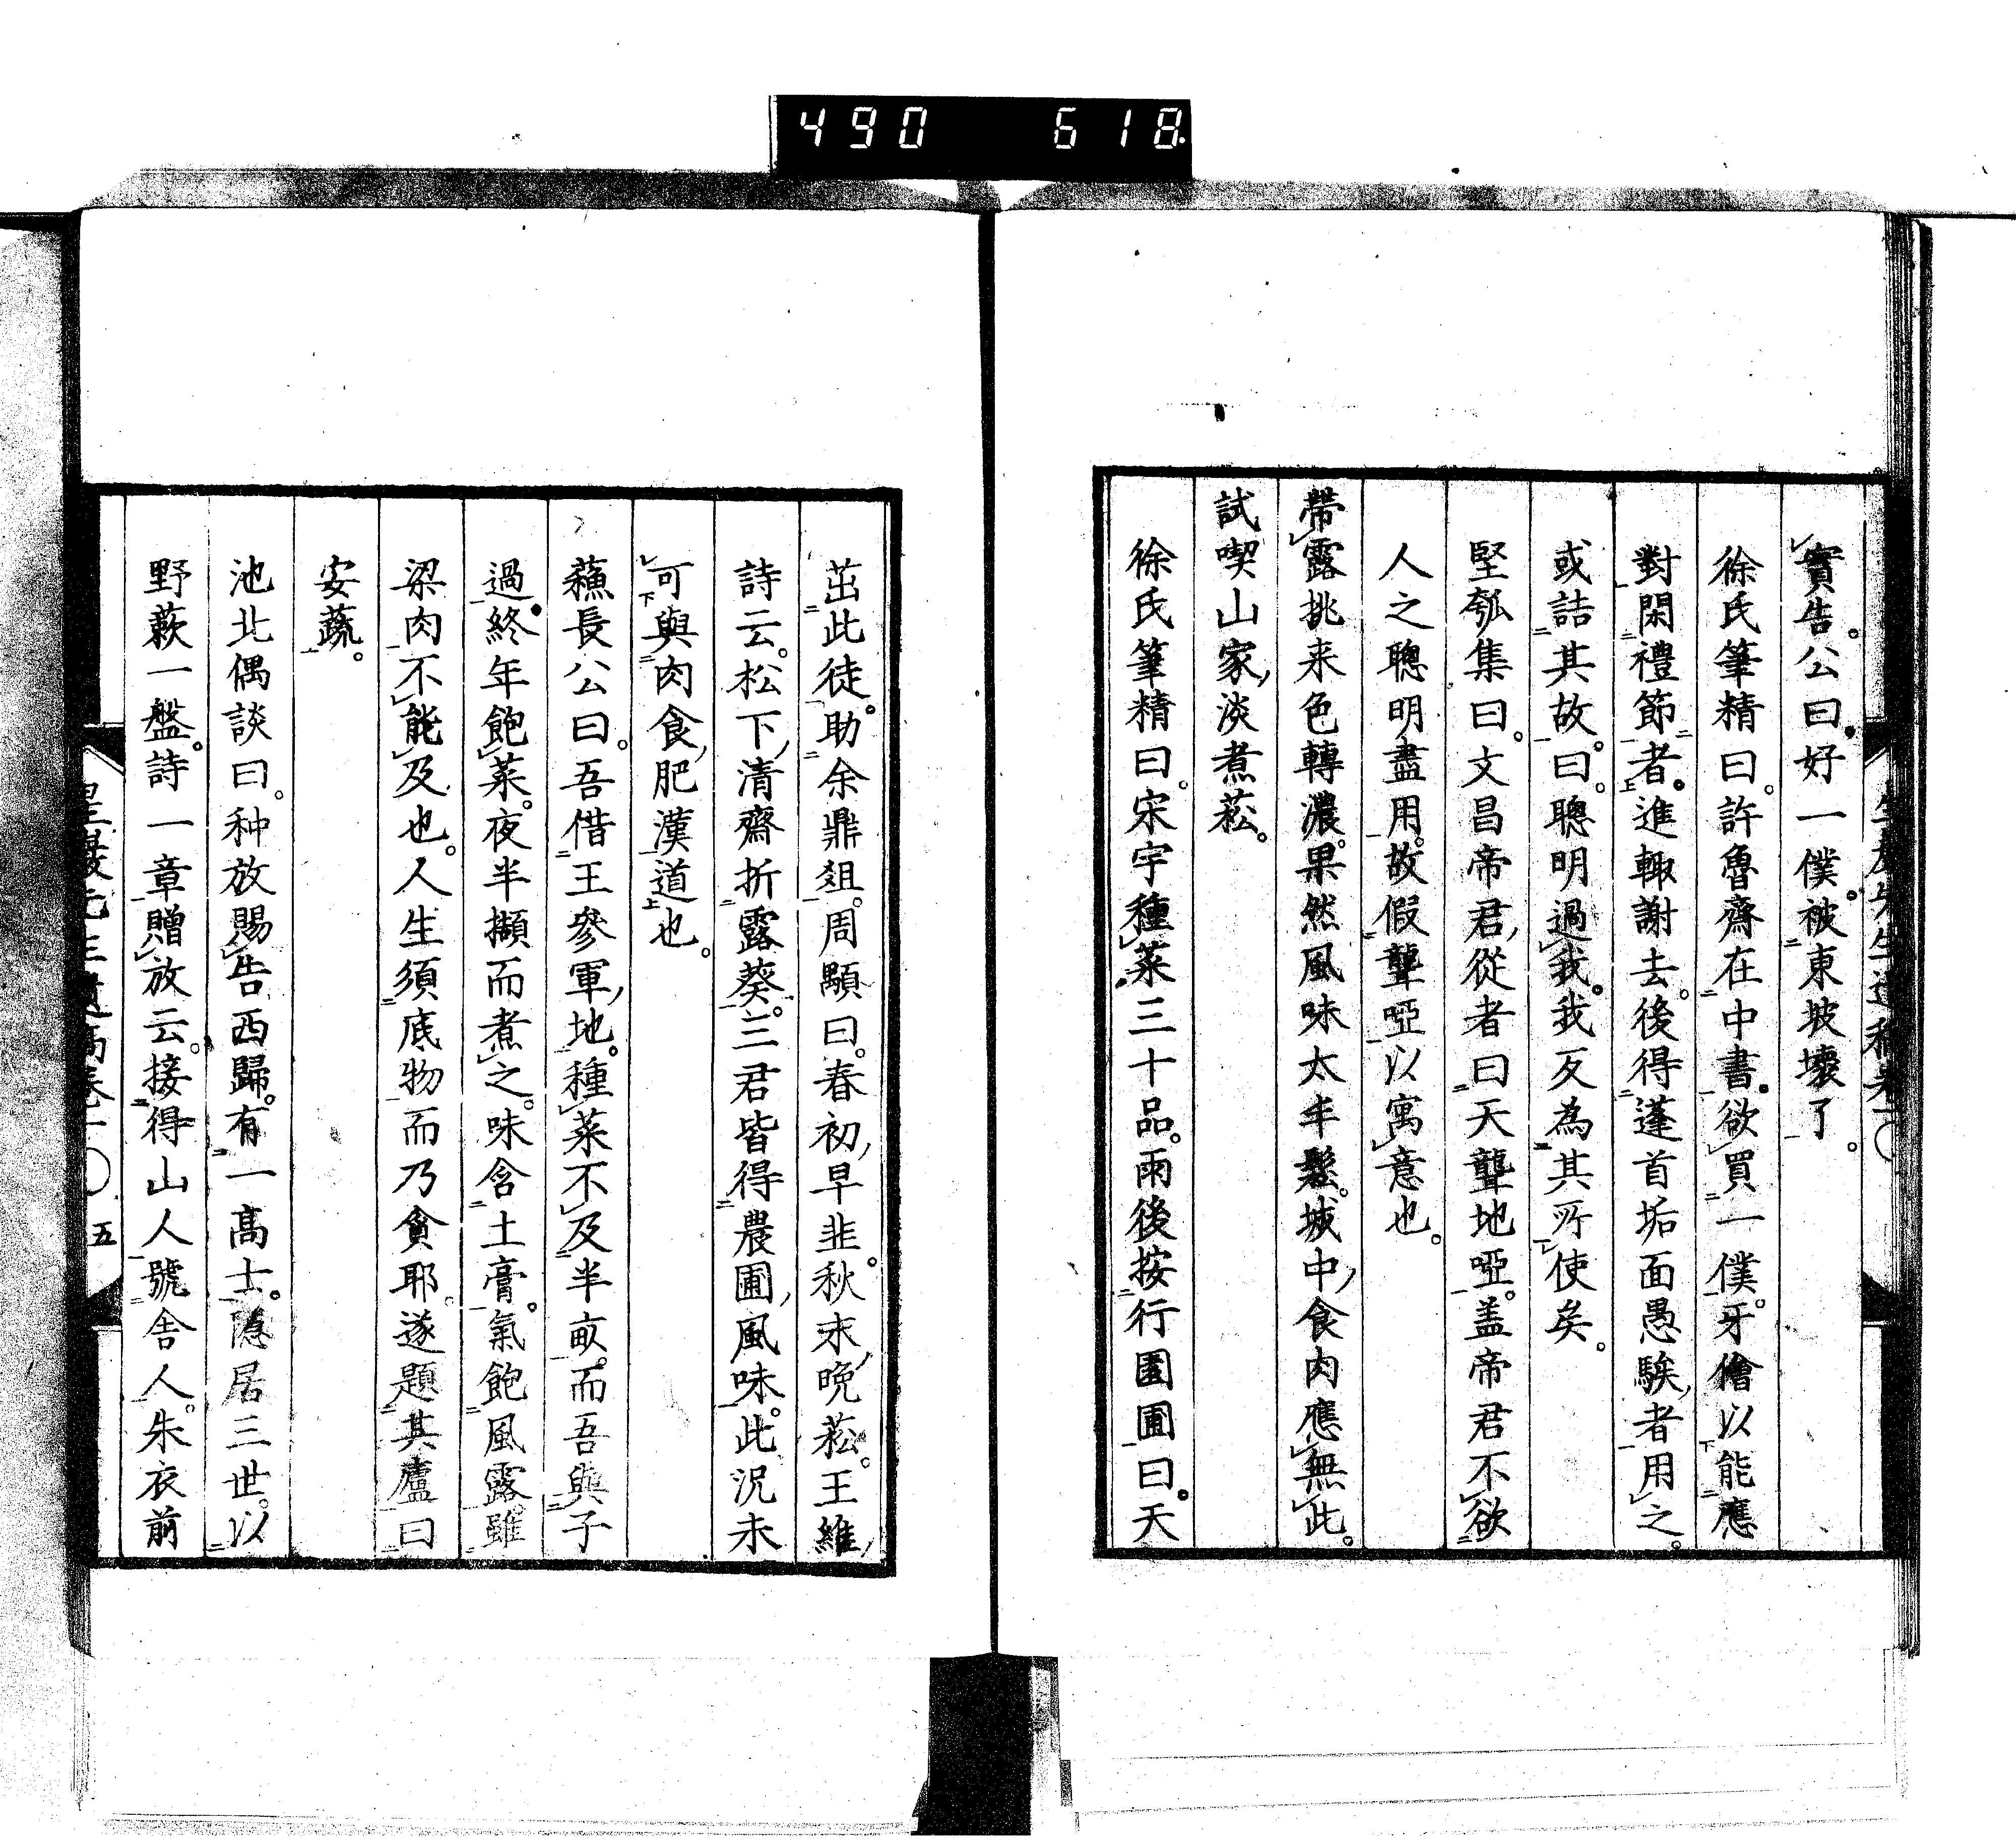 490 618
實告。公曰。好一僕。被東坡壞了。
徐氏筆精曰。許魯齋在中書。欲買一僕。牙儈以能應
對閑禮節者。進輙謝去。後得蓬首垢面愚騃者用之。
或詰其故。曰。聰明過我。我反為其所使矣。
堅瓠集曰。文昌帝君從者曰天聾地啞。盖帝君不欲
人之聰明盡用。故假聾啞以寓意也。
帶露挑来色轉濃。果然風味太丰鬆。城中食肉應無此。
試喫山家淡煮菘。
徐氏筆精曰。宋宇種菜三十品。雨後按行園圃曰。天
茁此徒。助余鼎俎。周顒曰。春初早韭。秋末晩菘。王維
詩云。松下清齋折露葵。三君皆得農圃風味。此況未
可與肉食肥漢道也。
蘓長公曰。吾借王參軍地。種菜不及半畝。而吾與子
過。終年飽菜。夜半擷而煮之。味含土膏。氣飽風露雖
梁肉不能及也。人生須底物而乃貪耶。遂題其廬曰
安蔬。
池北偶談曰。种放賜告西歸。有一高士。隱居三世。以
野蔌一盤。詩一章贈放云。接得山人號舍人。朱衣前
五